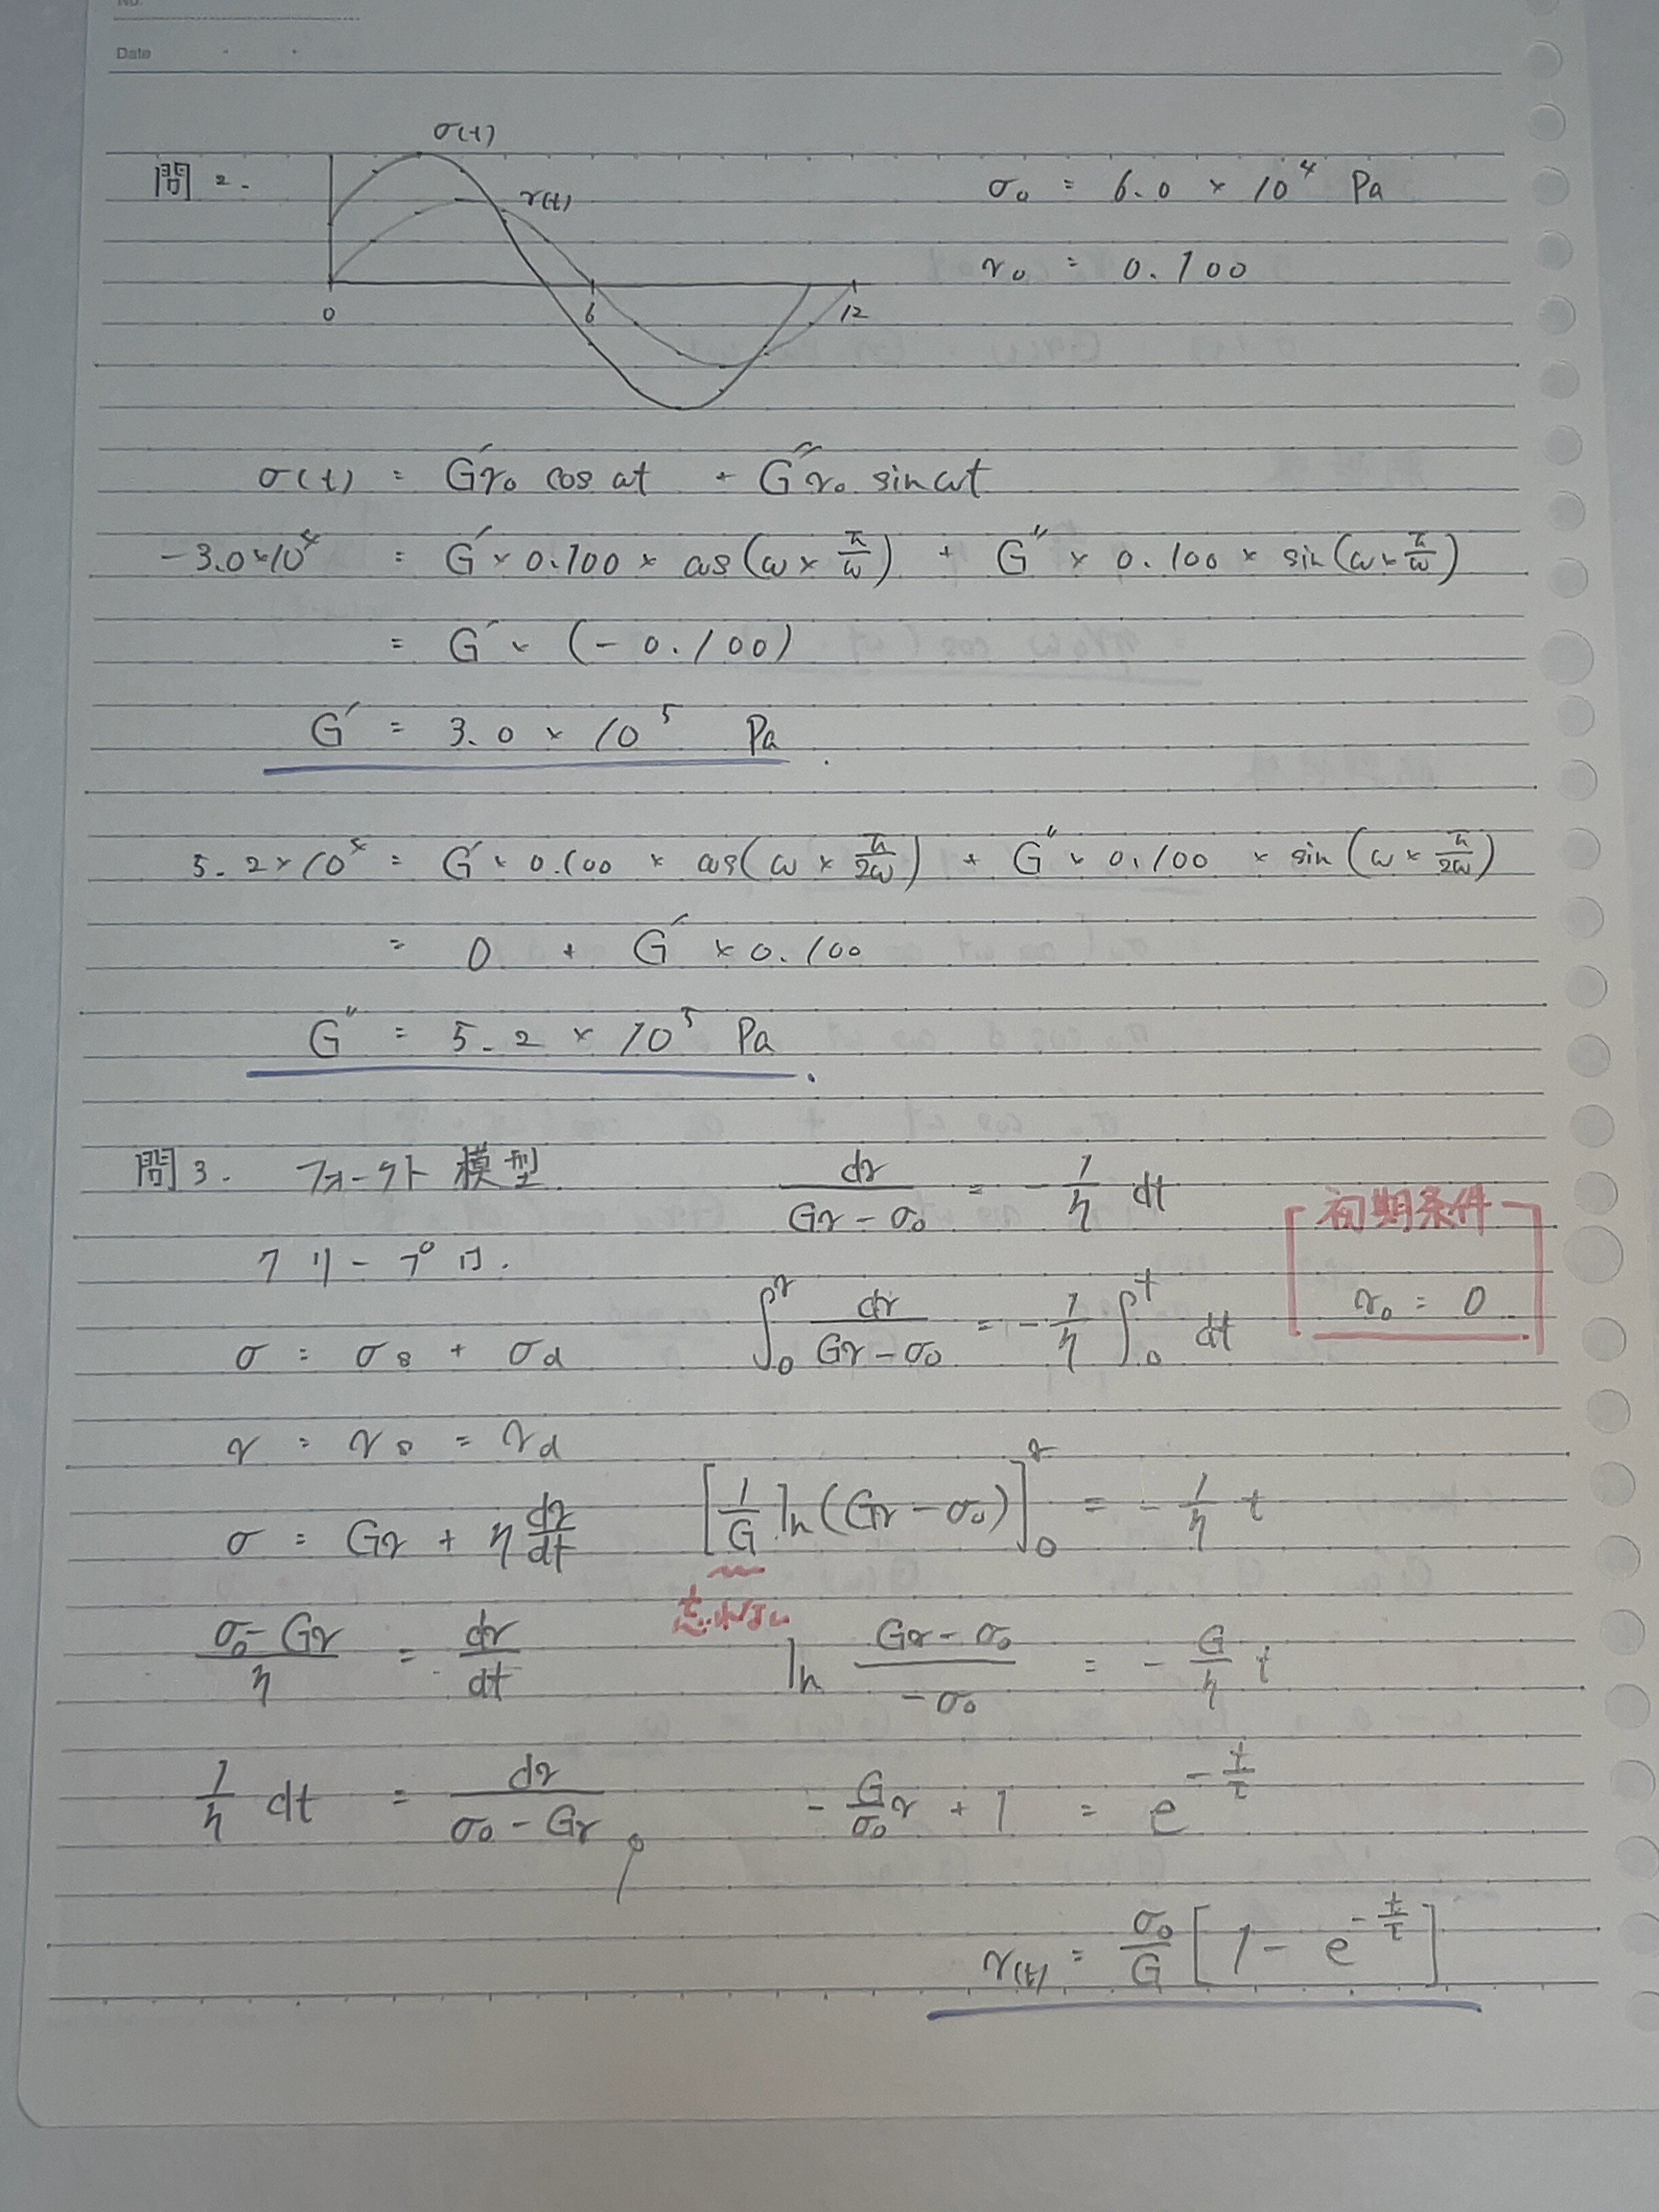 No.
Date
問2.
σ(t)
γ(t)
0 6 12
σ₀ = 6.0 × 10⁴ Pa
γ₀ = 0.100
σ(t) = G′γ₀ cos ωt + G″γ₀ sin ωt
-3.0×10⁴ = G′ × 0.100 × cos(ω × π/ω) + G″ × 0.100 × sin(ω × π/ω)
= G′ × (-0.100)
G′ = 3.0 × 10⁵ Pa.
5.2×10⁴ = G′ × 0.100 × cos(ω × π/2ω) + G″ × 0.100 × sin(ω × π/2ω)
= 0 + G′ × 0.100
G″ = 5.2 × 10⁵ Pa.
問3. フォークト模型
クリープ
σ = σs + σd
γ = γs = γd
σ = Gγ + η dγ/dt
(σ₀ - Gγ)/η = dγ/dt
1/η dt = dγ/(σ₀ - Gγ)
dγ/(Gγ - σ₀) = - 1/η dt
初期条件
γ₀ = 0
∫₀^γ dγ/(Gγ - σ₀) = - 1/η ∫₀^t dt
[1/G ln(Gγ - σ₀)]₀^γ = - 1/η t
忘れない
ln (Gγ - σ₀)/(-σ₀) = - G/η t
- G/σ₀ γ + 1 = e^(-t/τ)
γ(t) = σ₀/G [1 - e^(-t/τ)]